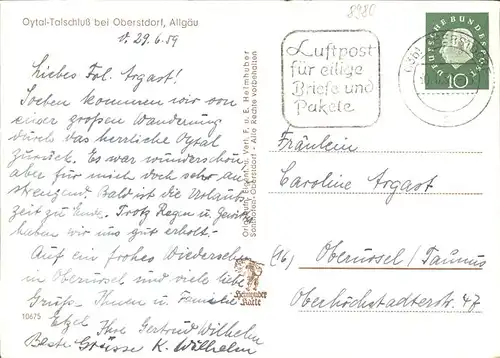 Oytal-Talschluß bei Oberstdorf, Allgäu
d. 29.6.59
Liebes Frl. Argast!
Soeben kommen wir von
einer großen Wanderung
durch das herrliche Oytal
zurück. Es war wunderschön
aber für mich doch sehr an
strengend. Bald ist die Urlaubs
zeit zu Ende. Trotz Regen u. Gewitter
haben wir uns gut erholt.
Auf ein frohes Wiedersehen
in Oberursel und viele liebe
Grüße Ihnen u. Familie
Etzel Ihre Gertrud Wilhelm
Beste Grüsse K. Wilhelm
10675
Original u. Eigent. u. Verl. F. u. E. Heimhuber
Sonthofen-Oberstdorf • Alle Rechte vorbehalten
Heimhuber
Karte
8980
Luftpost
für eilige
Briefe und
Pakete
DEUTSCHE BUNDESPOST
10
Fräulein
Caroline Argast
(16) Oberursel / Taunus
Oberhöchstadterstr. 47